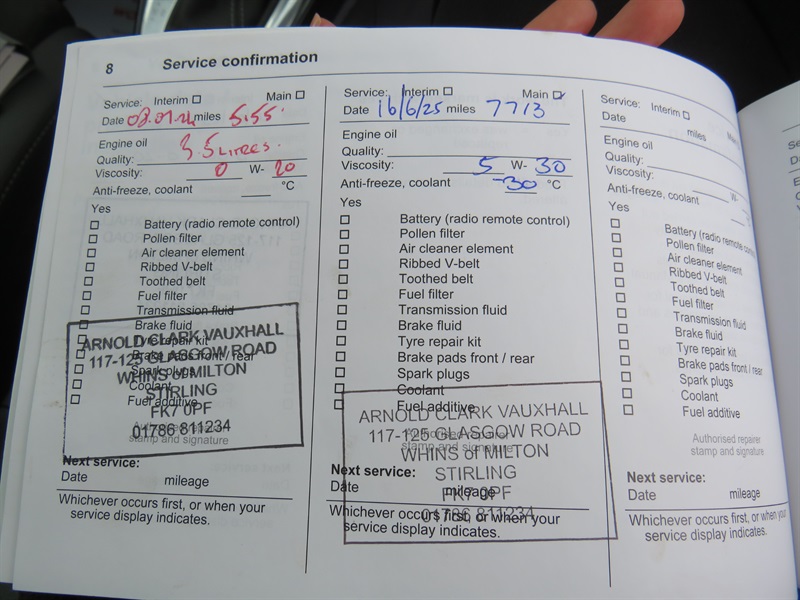 8 Service confirmation
Service: Interim Main
Date miles
Engine oil 3.5 Litres.
Quality:
Viscosity: 0 W- 20
Anti-freeze, coolant °C
Yes
Battery (radio remote control)
Pollen filter
Air cleaner element
Ribbed V-belt
Toothed belt
Fuel filter
Transmission fluid
Brake fluid
Tyre repair kit
Brake pads front / rear
Spark plugs
Coolant
Fuel additive
Authorised repairer
stamp and signature
ARNOLD CLARK VAUXHALL
117-125 GLASGOW ROAD
WHINS of MILTON
STIRLING
FK7 0PF
01786 811234
Next service:
Date mileage
Whichever occurs first, or when your
service display indicates.
Service: Interim Main
Date 16/6/25 miles 7713
Engine oil
Quality:
Viscosity: 5 W- 30
Anti-freeze, coolant -30 °C
Yes
Battery (radio remote control)
Pollen filter
Air cleaner element
Ribbed V-belt
Toothed belt
Fuel filter
Transmission fluid
Brake fluid
Tyre repair kit
Brake pads front / rear
Spark plugs
Coolant
Fuel additive
Authorised repairer
stamp and signature
ARNOLD CLARK VAUXHALL
117-125 GLASGOW ROAD
WHINS of MILTON
STIRLING
FK7 0PF
01786 811234
Next service:
Date mileage
Whichever occurs first, or when your
service display indicates.
Service: Interim
Date miles
Engine oil
Quality:
Viscosity: W-
Anti-freeze, coolant
Yes
Battery (radio remote
Pollen filter
Air cleaner element
Ribbed V-belt
Toothed belt
Fuel filter
Transmission fluid
Brake fluid
Tyre repair kit
Brake pads front / rear
Spark plugs
Coolant
Fuel additive
Authorised repairer
stamp and signature
Next service:
Date mileage
Whichever occurs first, or when you
service display indicates.